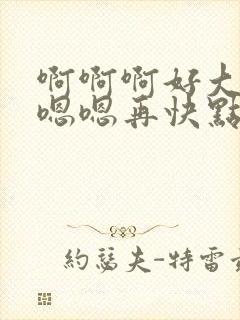 啊啊啊好大
嗯嗯再快點
約瑟夫-特雷